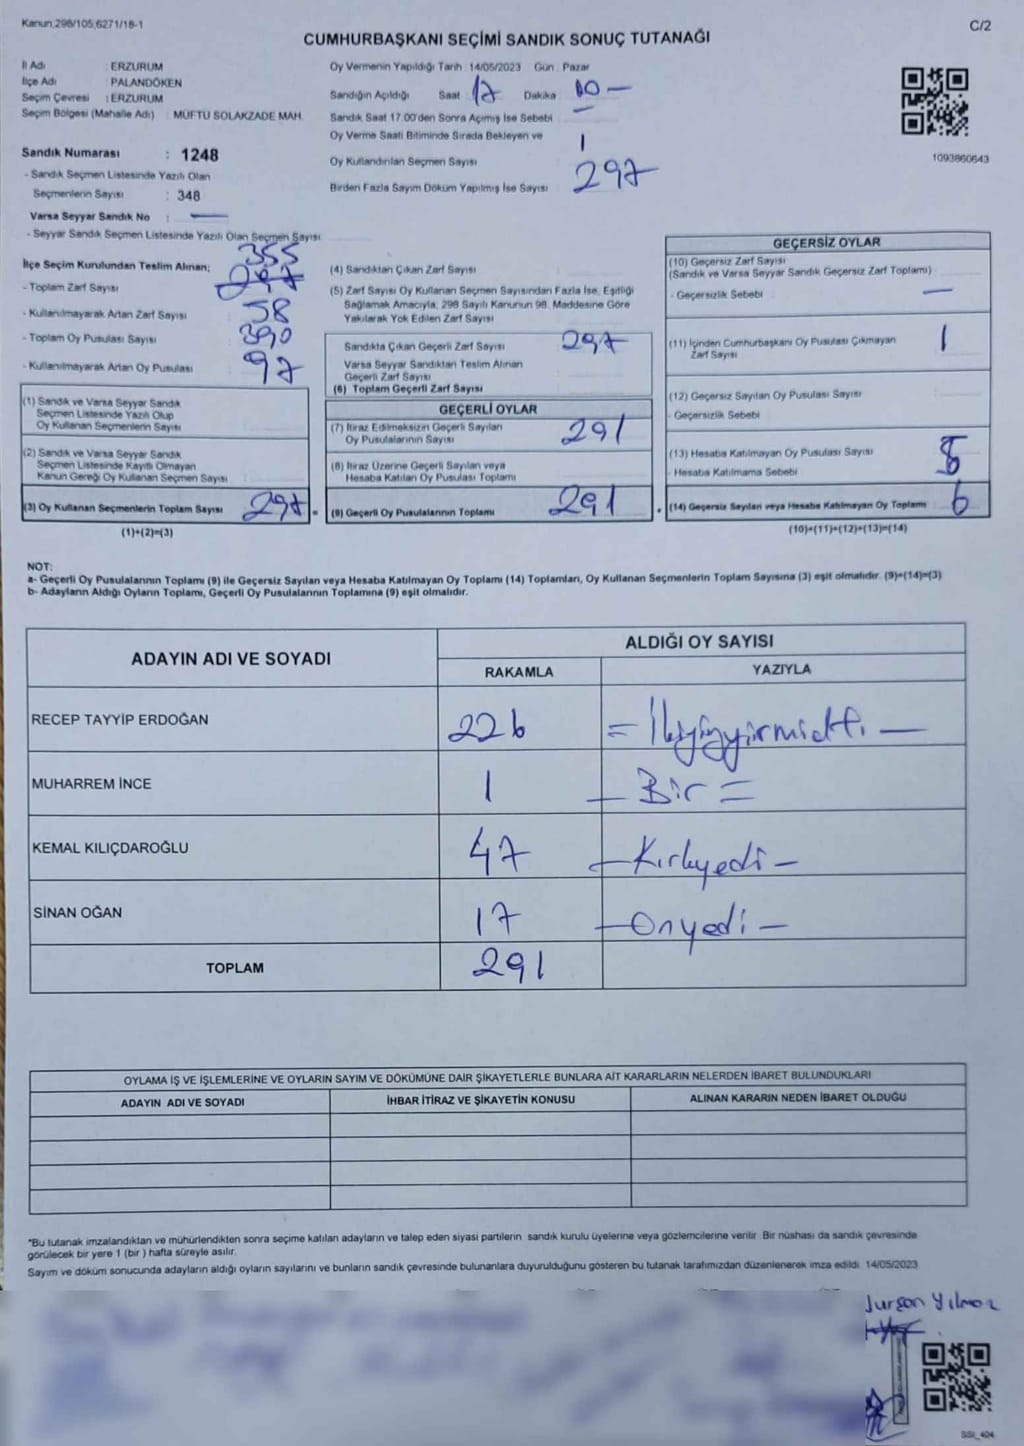 Kanun 298/105,6271/18-1
C/2
CUMHURBAŞKANI SEÇİMİ SANDIK SONUÇ TUTANAĞI
İl Adı : ERZURUM
İlçe Adı : PALANDÖKEN
Seçim Çevresi : ERZURUM
Seçim Bölgesi (Mahalle Adı) : MÜFTÜ SOLAKZADE MAH.
Sandık Numarası : 1248
- Sandık Seçmen Listesinde Yazılı Olan
Seçmenlerin Sayısı : 348
Varsa Seyyar Sandık No : —
- Seyyar Sandık Seçmen Listesinde Yazılı Olan Seçmen Sayısı
Oy Vermenin Yapıldığı Tarih : 14/05/2023 Gün : Pazar
Sandığın Açıldığı Saat 17 Dakika 00 —
Sandık Saat 17.00'den Sonra Açımış İse Sebebi —
Oy Verme Saati Bitiminde Sırada Bekleyen ve
Oy Kullandırılan Seçmen Sayısı 1
Birden Fazla Sayım Döküm Yapılmış İse Sayısı 297
1093860643
İlçe Seçim Kurulundan Teslim Alınan;
- Toplam Zarf Sayısı 355 297
- Kullanılmayarak Artan Zarf Sayısı 58
- Toplam Oy Pusulası Sayısı 390
- Kullanılmayarak Artan Oy Pusulası 97
(1) Sandık ve Varsa Seyyar Sandık
Seçmen Listesinde Yazılı Olup
Oy Kullanan Seçmenlerin Sayısı
(2) Sandık ve Varsa Seyyar Sandık
Seçmen Listesinde Kayıtlı Olmayan
Kanun Gereği Oy Kullanan Seçmen Sayısı
(3) Oy Kullanan Seçmenlerin Toplam Sayısı 297 =
(1)+(2)=(3)
(4) Sandıktan Çıkan Zarf Sayısı
(5) Zarf Sayısı Oy Kullanan Seçmen Sayısından Fazla İse, Eşitliği
Sağlamak Amacıyla, 298 Sayılı Kanunun 98. Maddesine Göre
Yakılarak Yok Edilen Zarf Sayısı
Sandıkta Çıkan Geçerli Zarf Sayısı 297
Varsa Seyyar Sandıktan Teslim Alınan
Geçerli Zarf Sayısı
(6) Toplam Geçerli Zarf Sayısı
GEÇERLİ OYLAR
(7) İtiraz Edilmeksizin Geçerli Sayılan
Oy Pusulalarının Sayısı 291
(8) İtiraz Üzerine Geçerli Sayılan veya
Hesaba Katılan Oy Pusulası Toplamı
(9) Geçerli Oy Pusulalarının Toplamı 291 +
GEÇERSİZ OYLAR
(10) Geçersiz Zarf Sayısı
(Sandık ve Varsa Seyyar Sandık Geçersiz Zarf Toplamı)
- Geçersizlik Sebebi —
(11) İçinden Cumhurbaşkanı Oy Pusulası Çıkmayan
Zarf Sayısı 1
(12) Geçersiz Sayılan Oy Pusulası Sayısı
- Geçersizlik Sebebi
(13) Hesaba Katılmayan Oy Pusulası Sayısı 5
- Hesaba Katılmama Sebebi
(14) Geçersiz Sayılan veya Hesaba Katılmayan Oy Toplamı 6
(10)+(11)+(12)+(13)=(14)
NOT:
a- Geçerli Oy Pusulalarının Toplamı (9) ile Geçersiz Sayılan veya Hesaba Katılmayan Oy Toplamı (14) Toplamları, Oy Kullanan Seçmenlerin Toplam Sayısına (3) eşit olmalıdır. (9)+(14)=(3)
b- Adayların Aldığı Oyların Toplamı, Geçerli Oy Pusulalarının Toplamına (9) eşit olmalıdır.
ADAYIN ADI VE SOYADI
ALDIĞI OY SAYISI
RAKAMLA YAZIYLA
RECEP TAYYİP ERDOĞAN 226 = İkiyüzyirmialtı —
MUHARREM İNCE 1 — Bir =
KEMAL KILIÇDAROĞLU 47 — Kırkyedi —
SİNAN OĞAN 17 — Onyedi —
TOPLAM 291
OYLAMA İŞ VE İŞLEMLERİNE VE OYLARIN SAYIM VE DÖKÜMÜNE DAİR ŞİKAYETLERLE BUNLARA AİT KARARLARIN NELERDEN İBARET BULUNDUKLARI
ADAYIN ADI VE SOYADI İHBAR İTİRAZ VE ŞİKAYETİN KONUSU ALINAN KARARIN NEDEN İBARET OLDUĞU
*Bu tutanak imzalandıktan ve mühürlendikten sonra seçime katılan adayların ve talep eden siyasi partilerin sandık kurulu üyelerine veya gözlemcilerine verilir. Bir nüshası da sandık çevresinde
görülecek bir yere 1 (bir ) hafta süreyle asılır.
Sayım ve döküm sonucunda adayların aldığı oyların sayılarını ve bunların sandık çevresinde bulunanlara duyurulduğunu gösteren bu tutanak tarafımızdan düzenlenerek imza edildi. 14/05/2023
Yılmaz
SSI_404